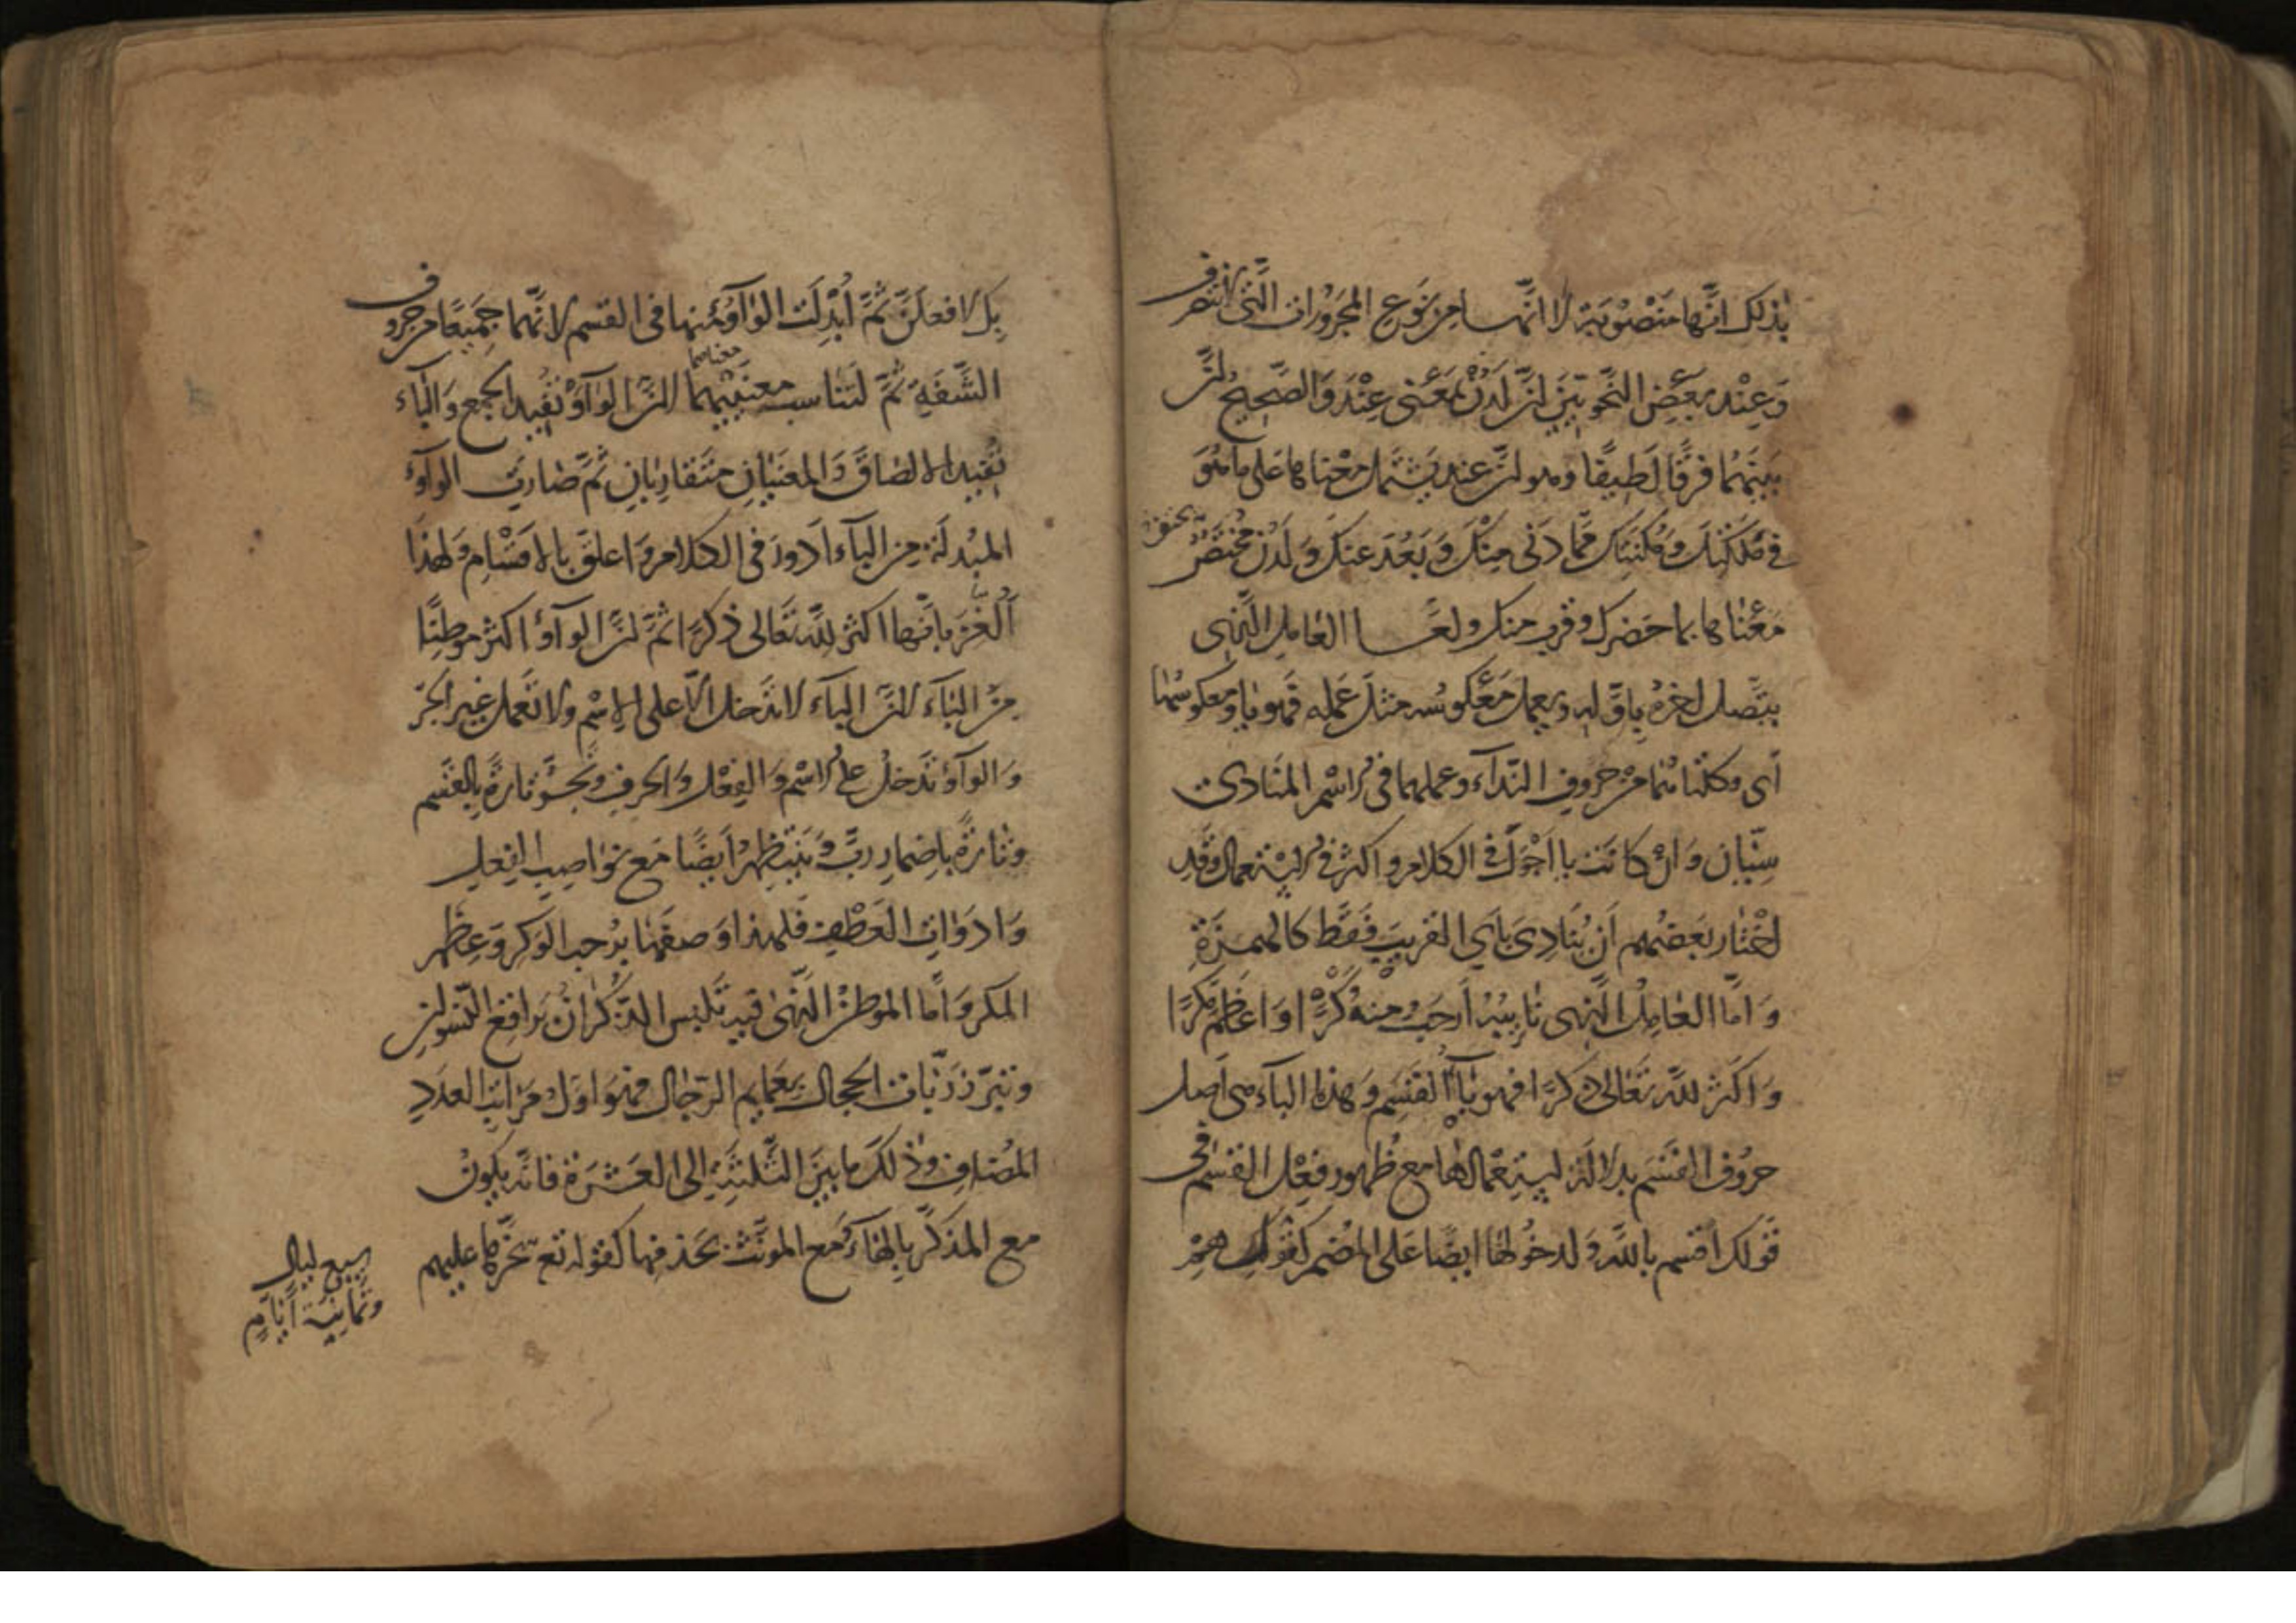 بذلك انّها منصوبة لا انّها من نوع المجرورات التي لا تنصرف
وَعِنْد بَعْضِ النَّحْويّينَ انَّ لَدُنْ بمَعْنى عِنْدَ وَالصَّحيحُ انّ
بَيْنَهُما فَرْقًا لَطيفًا وهو انّ عند يشتمل معْناها عَلى ما هُوَ
في مُلكَتِكَ وَمُكنَتِكَ مِمّا دَنى مِنْكَ وَبَعُدَ عنكَ وَلَدُن يختصّ
مَعْناها بما حَضَرك وقرب منك ولمّا العامل الَّذي
يتّصل اخرُه باوّله ويعمل مَعْكوسُه مثلَ عَمَله فهو يا ومعكوسُها
اَى وكلتاهُما من حروفِ النّدآء وعملهما فى الاسْم المنادى
سيّان وَانْ كانَت يا اَجْوَلَ في الكلام واكثر في الاستعمال وقد
اخْتار بَعضُهم اَن يُنَادِى بأَى القريبَ فَقَط كالهمزَة
وَامّا العَامِل الَّذى نَائبُهُ اَرحَبُ منهُ وَكْرًا وَاعظَمُ مَكْرًا
وَاكثر للّه تَعَالى ذكرًا فهو بآء القَسَم وَهذه البآء هى اَصل
حرُوف القَسَم بدلالَة اسْتِعْمالهَا مع ظُهور فعْل القَسَم في
قَولك اُقسم باللّه وَلدخُولهَا ايضًا عَلى المُضمر كقولك
بكَ لافعلَنَّ ثُمَّ اُبْدِلَت الوَاوُ منها في القسم لانَّهما جَميعًا من حروف
الشَّفَةِ ثُمَّ لتَناسب معنَيَيْهما معناهما لانّ الوَاوَ تُفيد الجمعَ وَالبَاءَ
تُفيد الالصَاقَ وَالمعْنَيانِ متَقاربَانِ ثُمَّ صَارَت الواوُ
المبْدلَة من البآء اَدورَ في الكلام وَاعلقَ بالاقسَام وَلهذَا
اَلْغَزَ بانّها اكثر للّه تَعَالى ذكرًا ثمَّ انّ الواوَ اكثرُ موطِنًا
مِنَ البَآءِ لانّ البآء لا تَدخل الّا على الاسْم ولا تَعمل غيرَ الجرّ
وَالواوُ تدخُلُ على الاسْم وَالفِعْل وَالحرف وتجرّ تارةً بالقَسَم
وتَارةً باضمار رُبَّ وَتَنتَظم اَيضًا مَع نواصب الفعل
وَادوات العَطْف فَلهذا وَصفَهَا برُحب الوَكر وَعِظَم
المَكر وَامّا الموطنُ الَّذى فيه تَلبس الذُّكْرانُ بَراقعَ النّسوان
وتبرز ربّات الحجال بعَمايم الرّجال فهُوَ اوّل مَراتب العدَد
المضاف وذلك ما بينَ الثَّلثَةِ الى العَشَرة فانّه يكونُ
مع المذكّر بالهاء وَمع المؤنّث بحَذفها كقوله تع سَخّرَها عليهم
سبع ليال
وثمانية ايّام